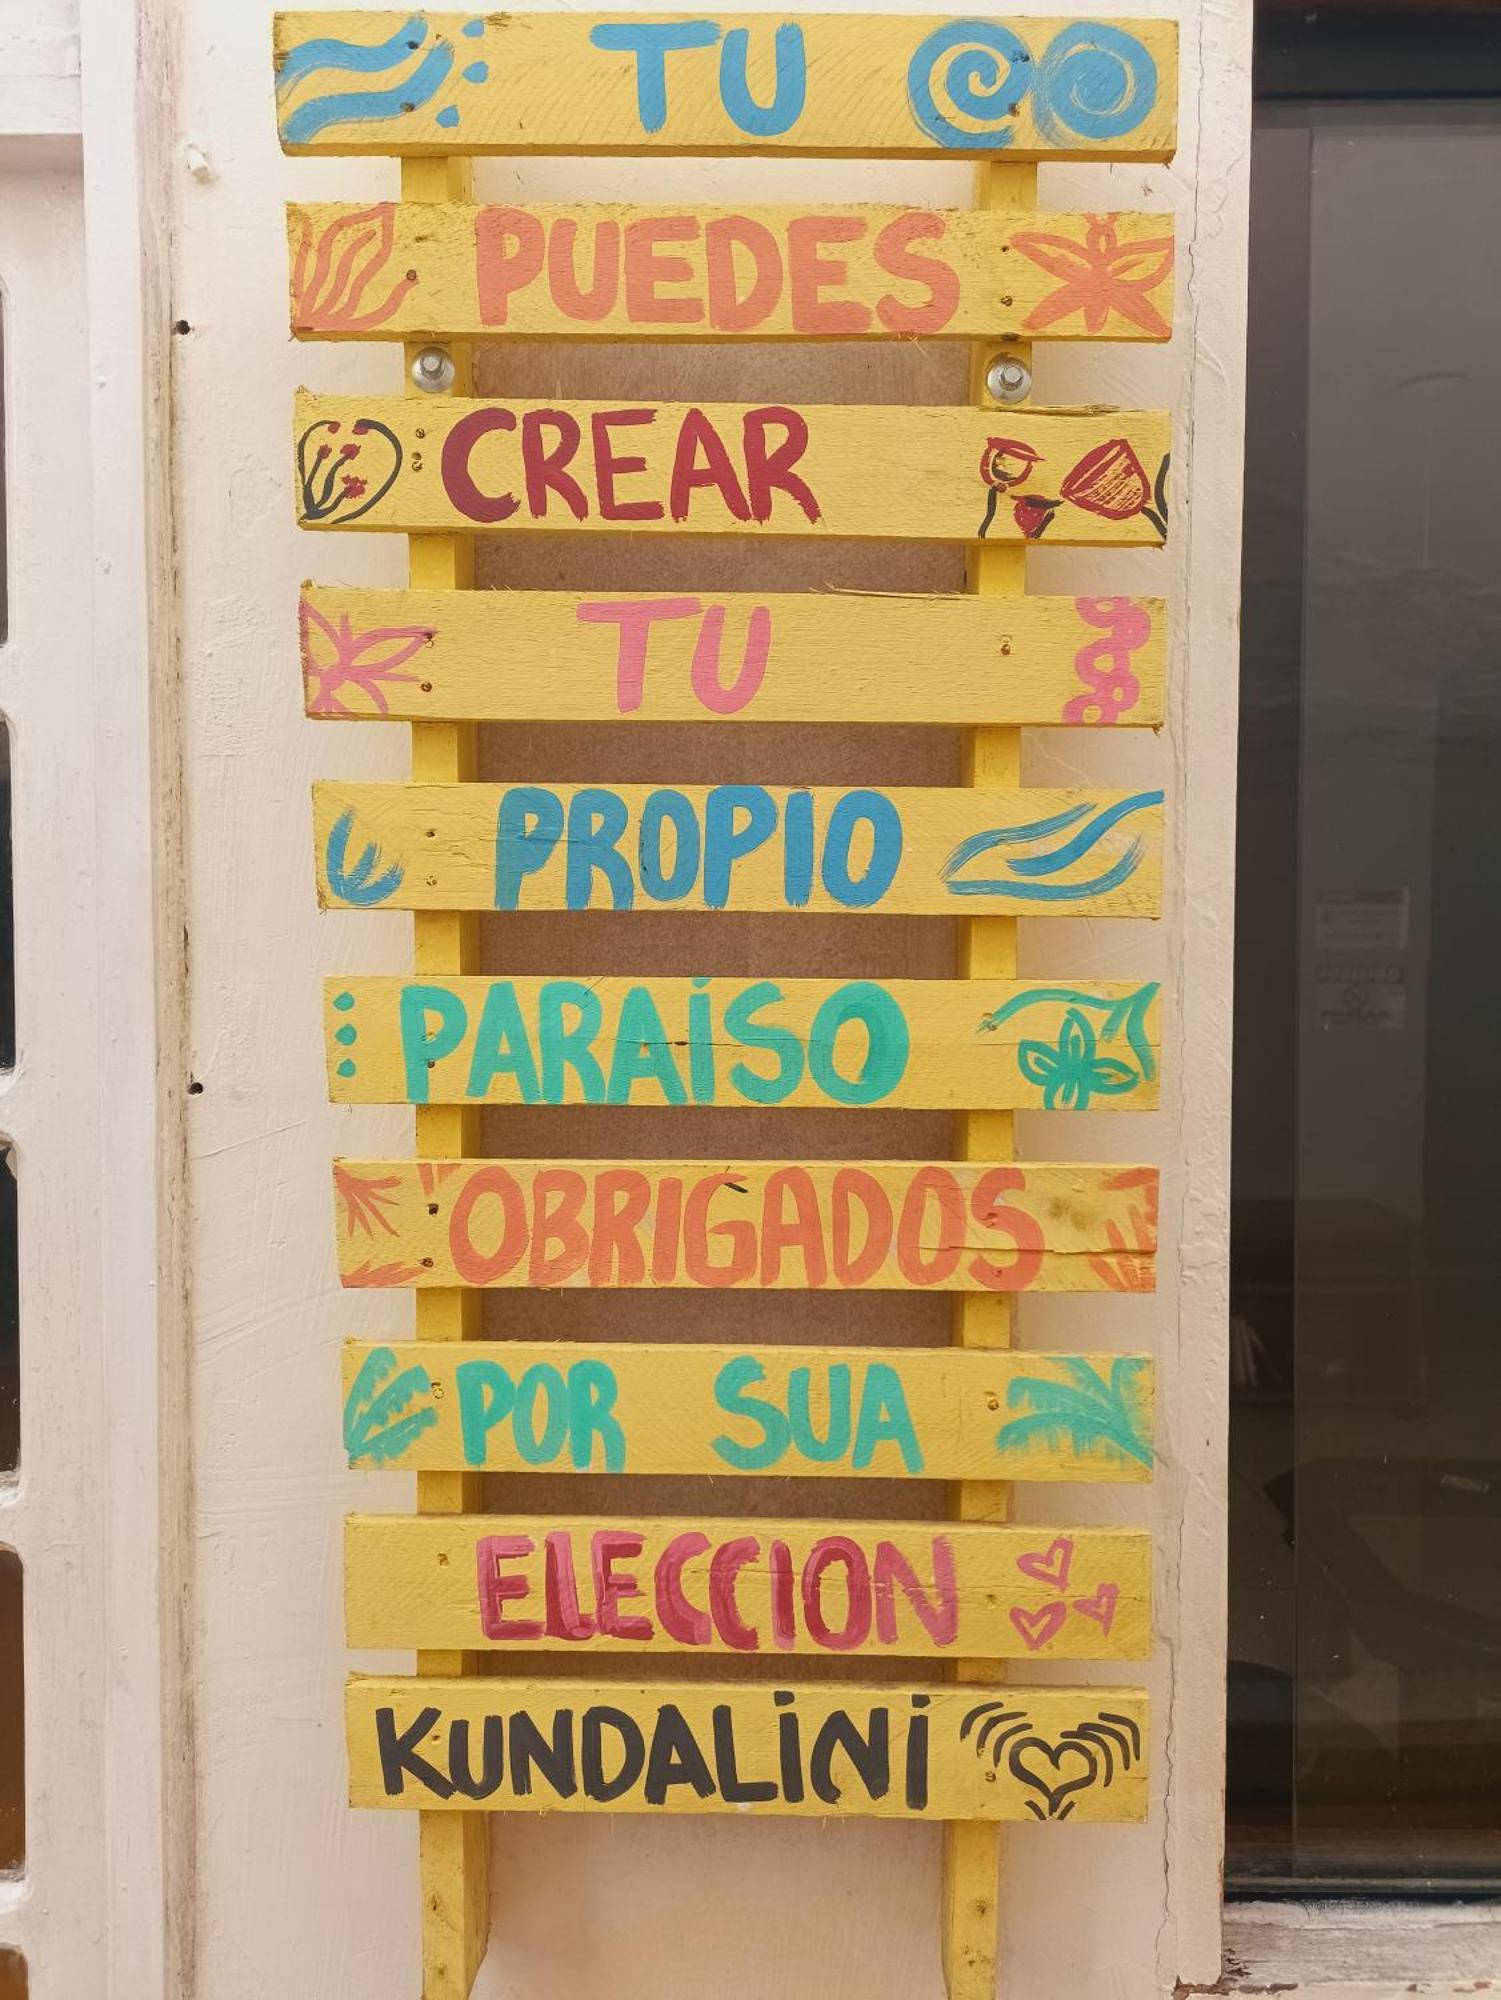 TU
PUEDES
CREAR
TU
PROPIO
PARAÍSO
OBRIGADOS
POR SUA
ELECCION
KUNDALINI